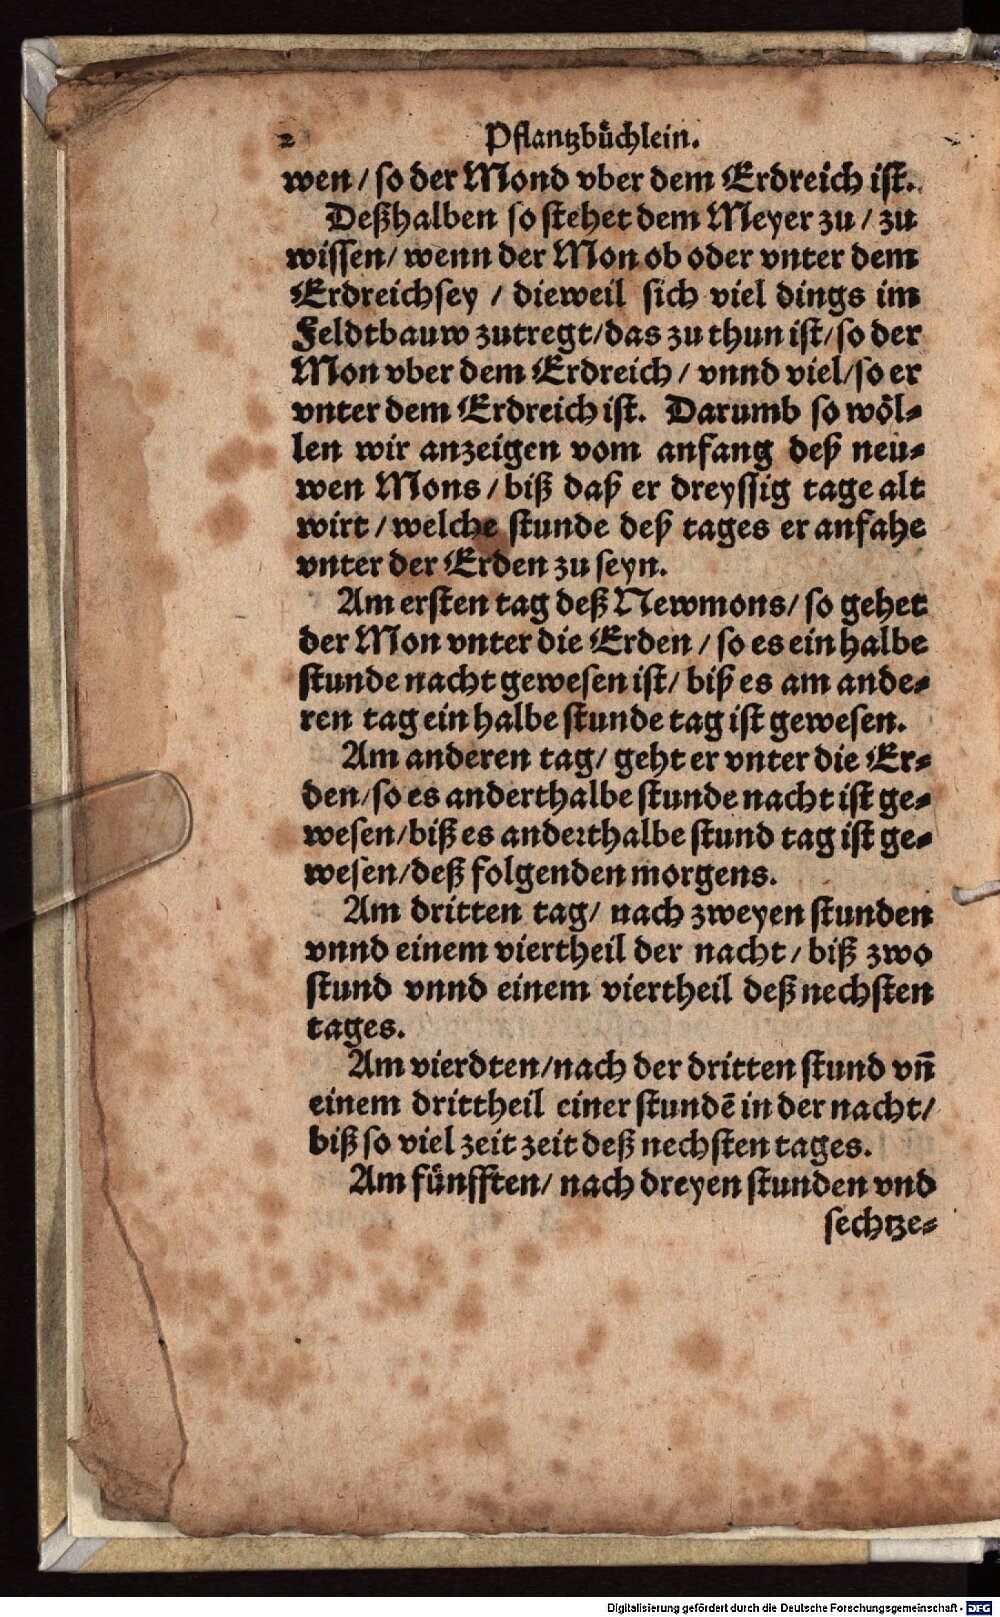 2 Pflantzbůchlein.
wen / so der Mond vber dem Erdreich ist.
Deßhalben so stehet dem Meyer zu / zu
wissen / wenn der Mon ob oder vnter dem
Erdreich sey / dieweil sich viel dings im
Feldtbauw zutregt / das zu thun ist / so der
Mon vber dem Erdreich / vnnd viel / so er
vnter dem Erdreich ist. Darumb so wöl⸗
len wir anzeigen vom anfang deß neu⸗
wen Mons / biß daß er dreyssig tage alt
wirt / welche stunde deß tages er anfahe
vnter der Erden zu seyn.
Am ersten tag deß Newmons / so gehet
der Mon vnter die Erden / so es ein halbe
stunde nacht gewesen ist / biß es am ande⸗
ren tag ein halbe stunde tag ist gewesen.
Am anderen tag / geht er vnter die Er⸗
den / so es anderthalbe stunde nacht ist ge⸗
wesen / biß es anderthalbe stund tag ist ge⸗
wesen / deß folgenden morgens.
Am dritten tag / nach zweyen stunden
vnnd einem viertheil der nacht / biß zwo
stund vnnd einem viertheil deß nechsten
tages.
Am vierdten / nach der dritten stund vñ
einem drittheil einer stundē in der nacht /
biß so viel zeit zeit deß nechsten tages.
Am fünfften / nach dreyen stunden vnd
sechtze⸗
Digitalisierung gefördert durch die Deutsche Forschungsgemeinschaft - DFG